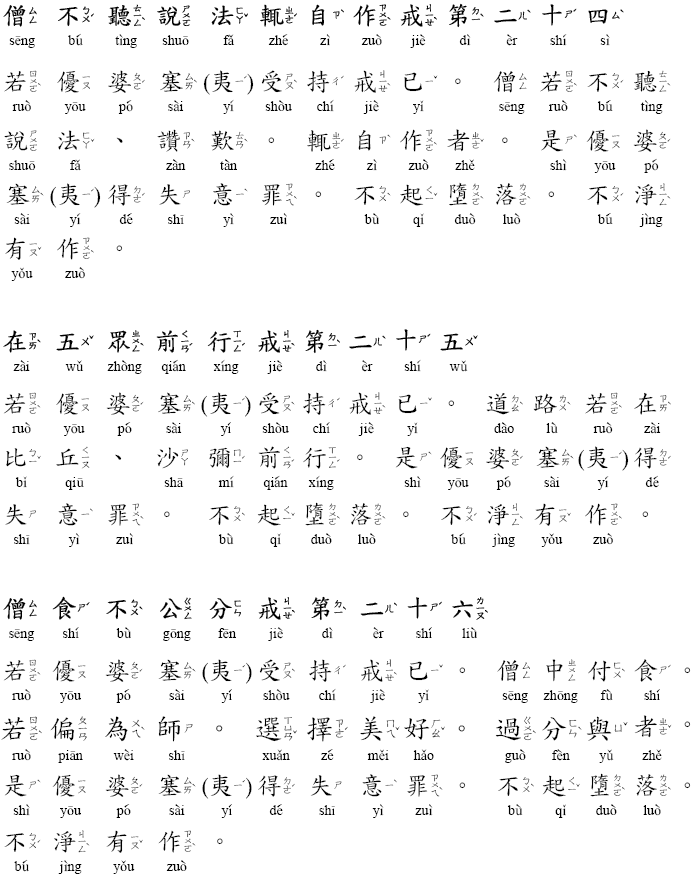 僧不聽說法輒自作戒第二十四
sēng bú tìng shuō fǎ zhé zì zuò jiè dì èr shí sì
若優婆塞(夷)受持戒已。僧若不聽
ruò yōu pó sài yí shòu chí jiè yǐ sēng ruò bú tìng
說法、讚歎。輒自作者。是優婆
shuō fǎ zàn tàn zhé zì zuò zhě shì yōu pó
塞(夷)得失意罪。不起墮落。不淨
sài yí dé shī yì zuì bù qǐ duò luò bú jìng
有作。
yǒu zuò
在五眾前行戒第二十五
zài wǔ zhòng qián xíng jiè dì èr shí wǔ
若優婆塞(夷)受持戒已。道路若在
ruò yōu pó sài yí shòu chí jiè yǐ dào lù ruò zài
比丘、沙彌前行。是優婆塞(夷)得
bǐ qiū shā mí qián xíng shì yōu pó sài yí dé
失意罪。不起墮落。不淨有作。
shī yì zuì bù qǐ duò luò bú jìng yǒu zuò
僧食不公分戒第二十六
sēng shí bù gōng fēn jiè dì èr shí liù
若優婆塞(夷)受持戒已。僧中付食。
ruò yōu pó sài yí shòu chí jiè yǐ sēng zhōng fù shí
若偏為師。選擇美好。過分與者。
ruò piān wèi shī xuǎn zé měi hǎo guò fèn yǔ zhě
是優婆塞(夷)得失意罪。不起墮落。
shì yōu pó sài yí dé shī yì zuì bù qǐ duò luò
不淨有作。
bú jìng yǒu zuò